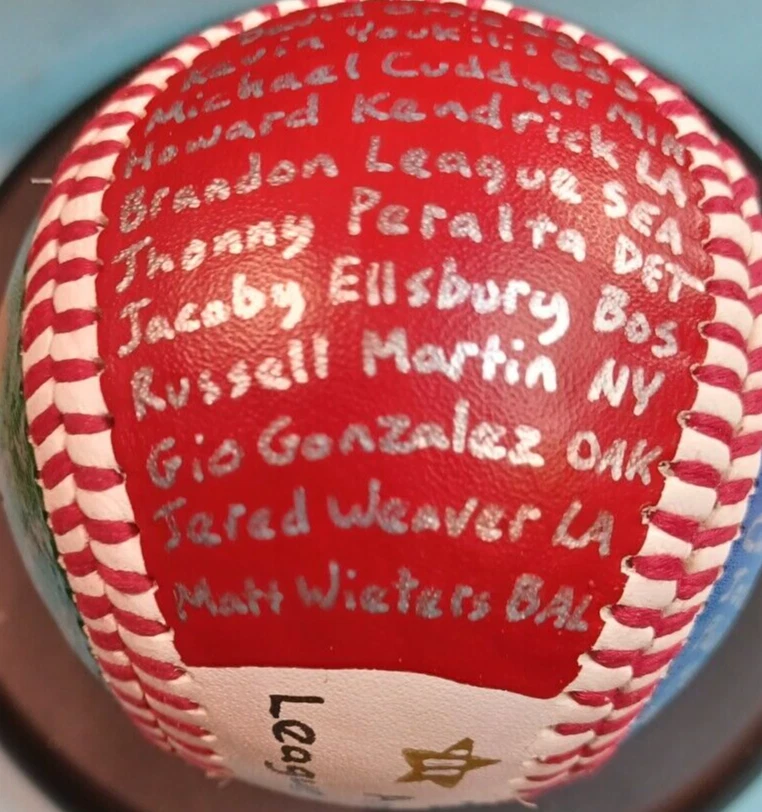 David
Kevin Youkilis BOS
Michael Cuddyer MIN
Howard Kendrick LA
Brandon League SEA
Jhonny Peralta DET
Jacoby Ellsbury BOS
Russell Martin NY
Gio Gonzalez OAK
Jered Weaver LA
Matt Wieters BAL